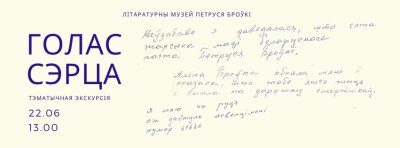 ЛІТАРАТУРНЫ МУЗЕЙ ПЕТРУСЯ БРОЎКІ
ГОЛАС
СЭРЦА
ТЭМАТЫЧНАЯ ЭКСКУРСІЯ
22.06
13.00
Неўзабаве я даведалася, што гэта
жанчына маці беларускага
паэта Петруся Броўкі.
Алёна Броўка абняла мяне і
сказала, што табе яшчэ жыць
і выйшла на дарожку смяротнікаў.
Я маю на руцэ
нумар 61680